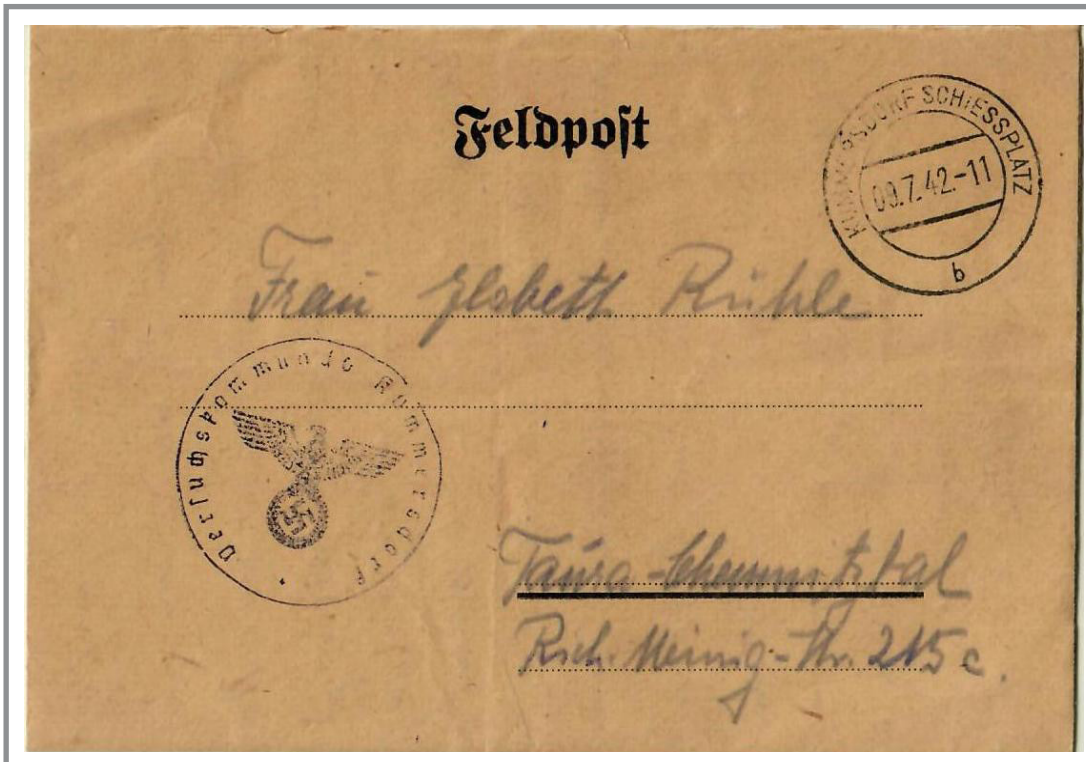 Feldpost
KUMMERSDORF SCHIESSPLATZ
09.7.42.-11
b
Frau Elsbett Rühle
Versuchskommando Kummersdorf
Taura-Chemnitztal
Rich. Meinig-Str. 215 c.